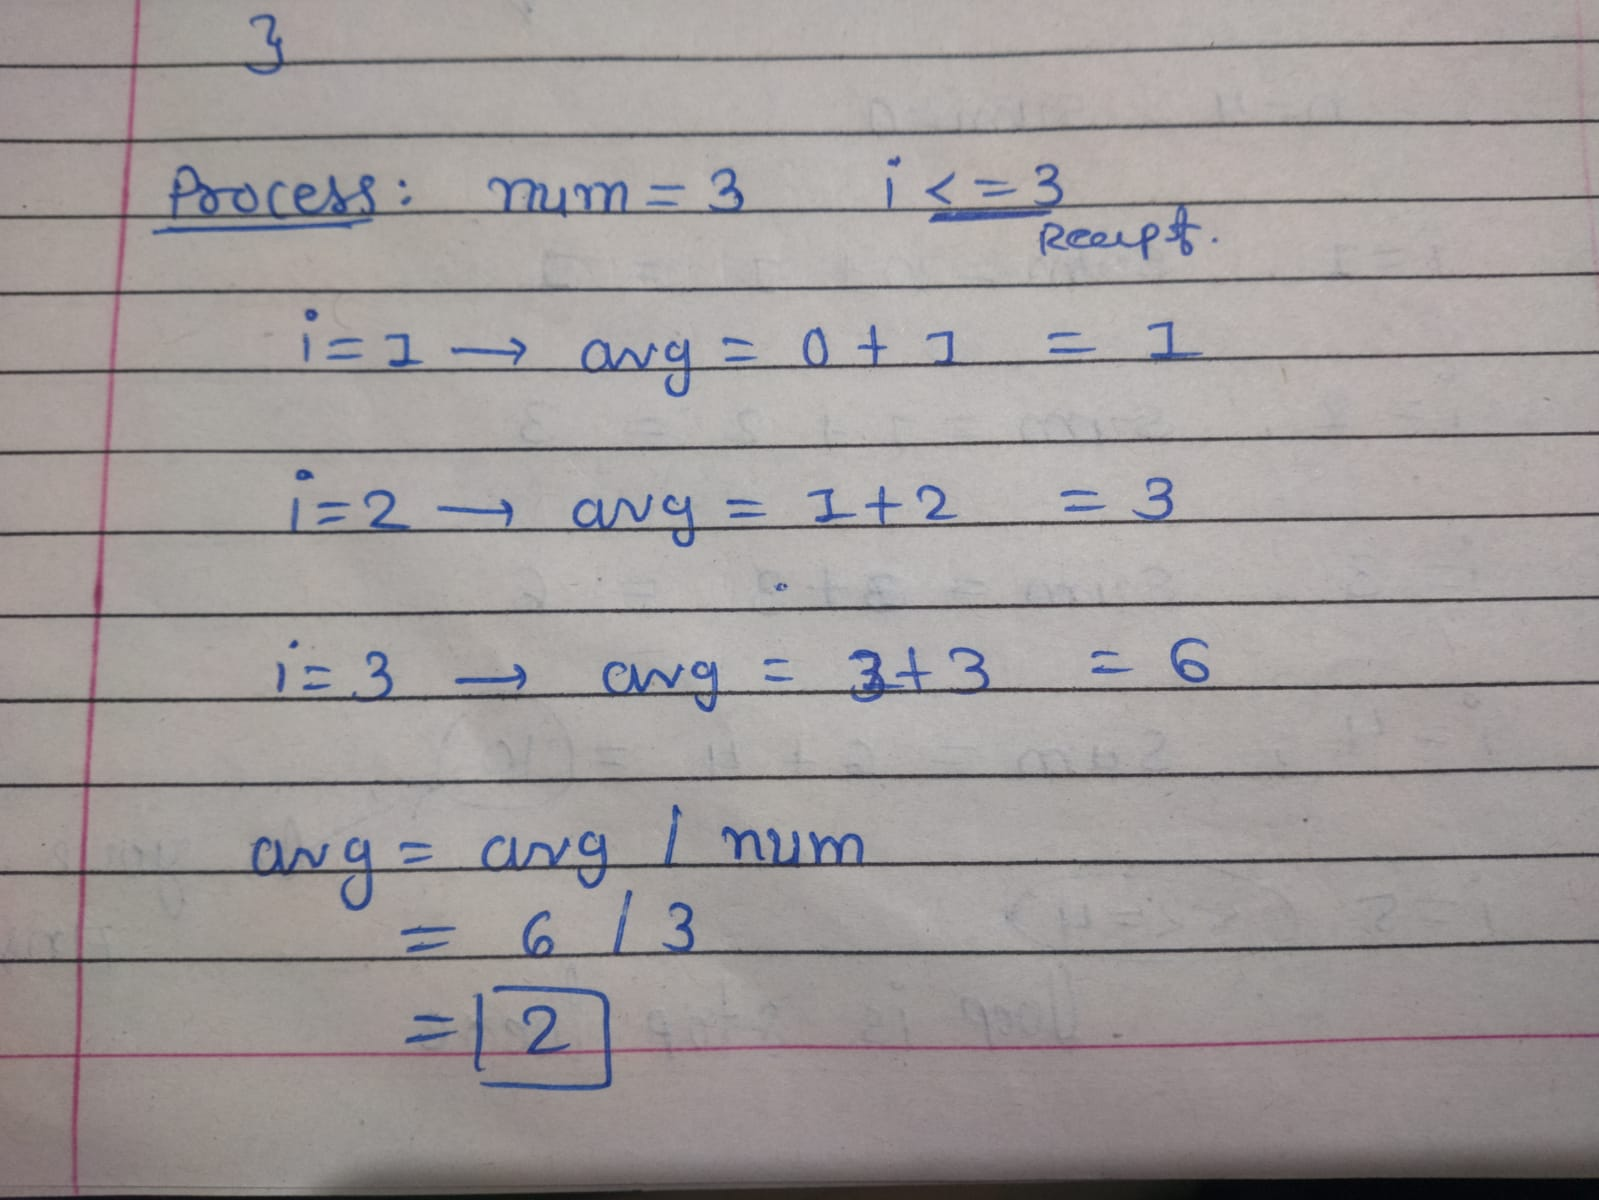 }
Process: num = 3 i <= 3
i = 1 → avg = 0 + 1 = 1
i = 2 → avg = 1 + 2 = 3
i = 3 → avg = 3 + 3 = 6
avg = avg / num
= 6 / 3
= 2